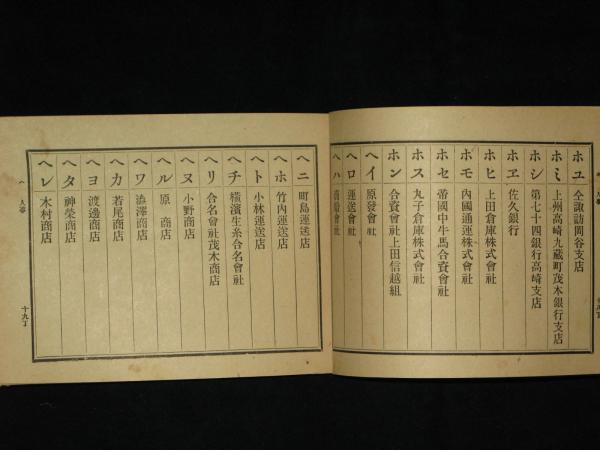 ホユ 仝諏訪岡谷支店
ホミ 上州高崎九蔵町茂木銀行支店
ホシ 第七十四銀行高崎支店
ホヱ 佐久銀行
ホヒ 上田倉庫株式會社
ホモ 內國通運株式會社
ホセ 帝國中牛馬合資會社
ホス 丸子倉庫株式會社
ホン 合資會社上田信越組
ヘイ 原發會社
ヘロ 運送會社
ヘハ 會社
ヘニ 町島運送店
ヘホ 竹內運送店
ヘト 小林運送店
ヘチ 橫濱生糸合名會社
ヘリ 合名會社茂木商店
ヘヌ 小野商店
ヘル 原商店
ヘワ 澁澤商店
ヘカ 若尾商店
ヘヨ 渡邊商店
ヘタ 神榮商店
ヘレ 木村商店
ヘ 人事
十九丁